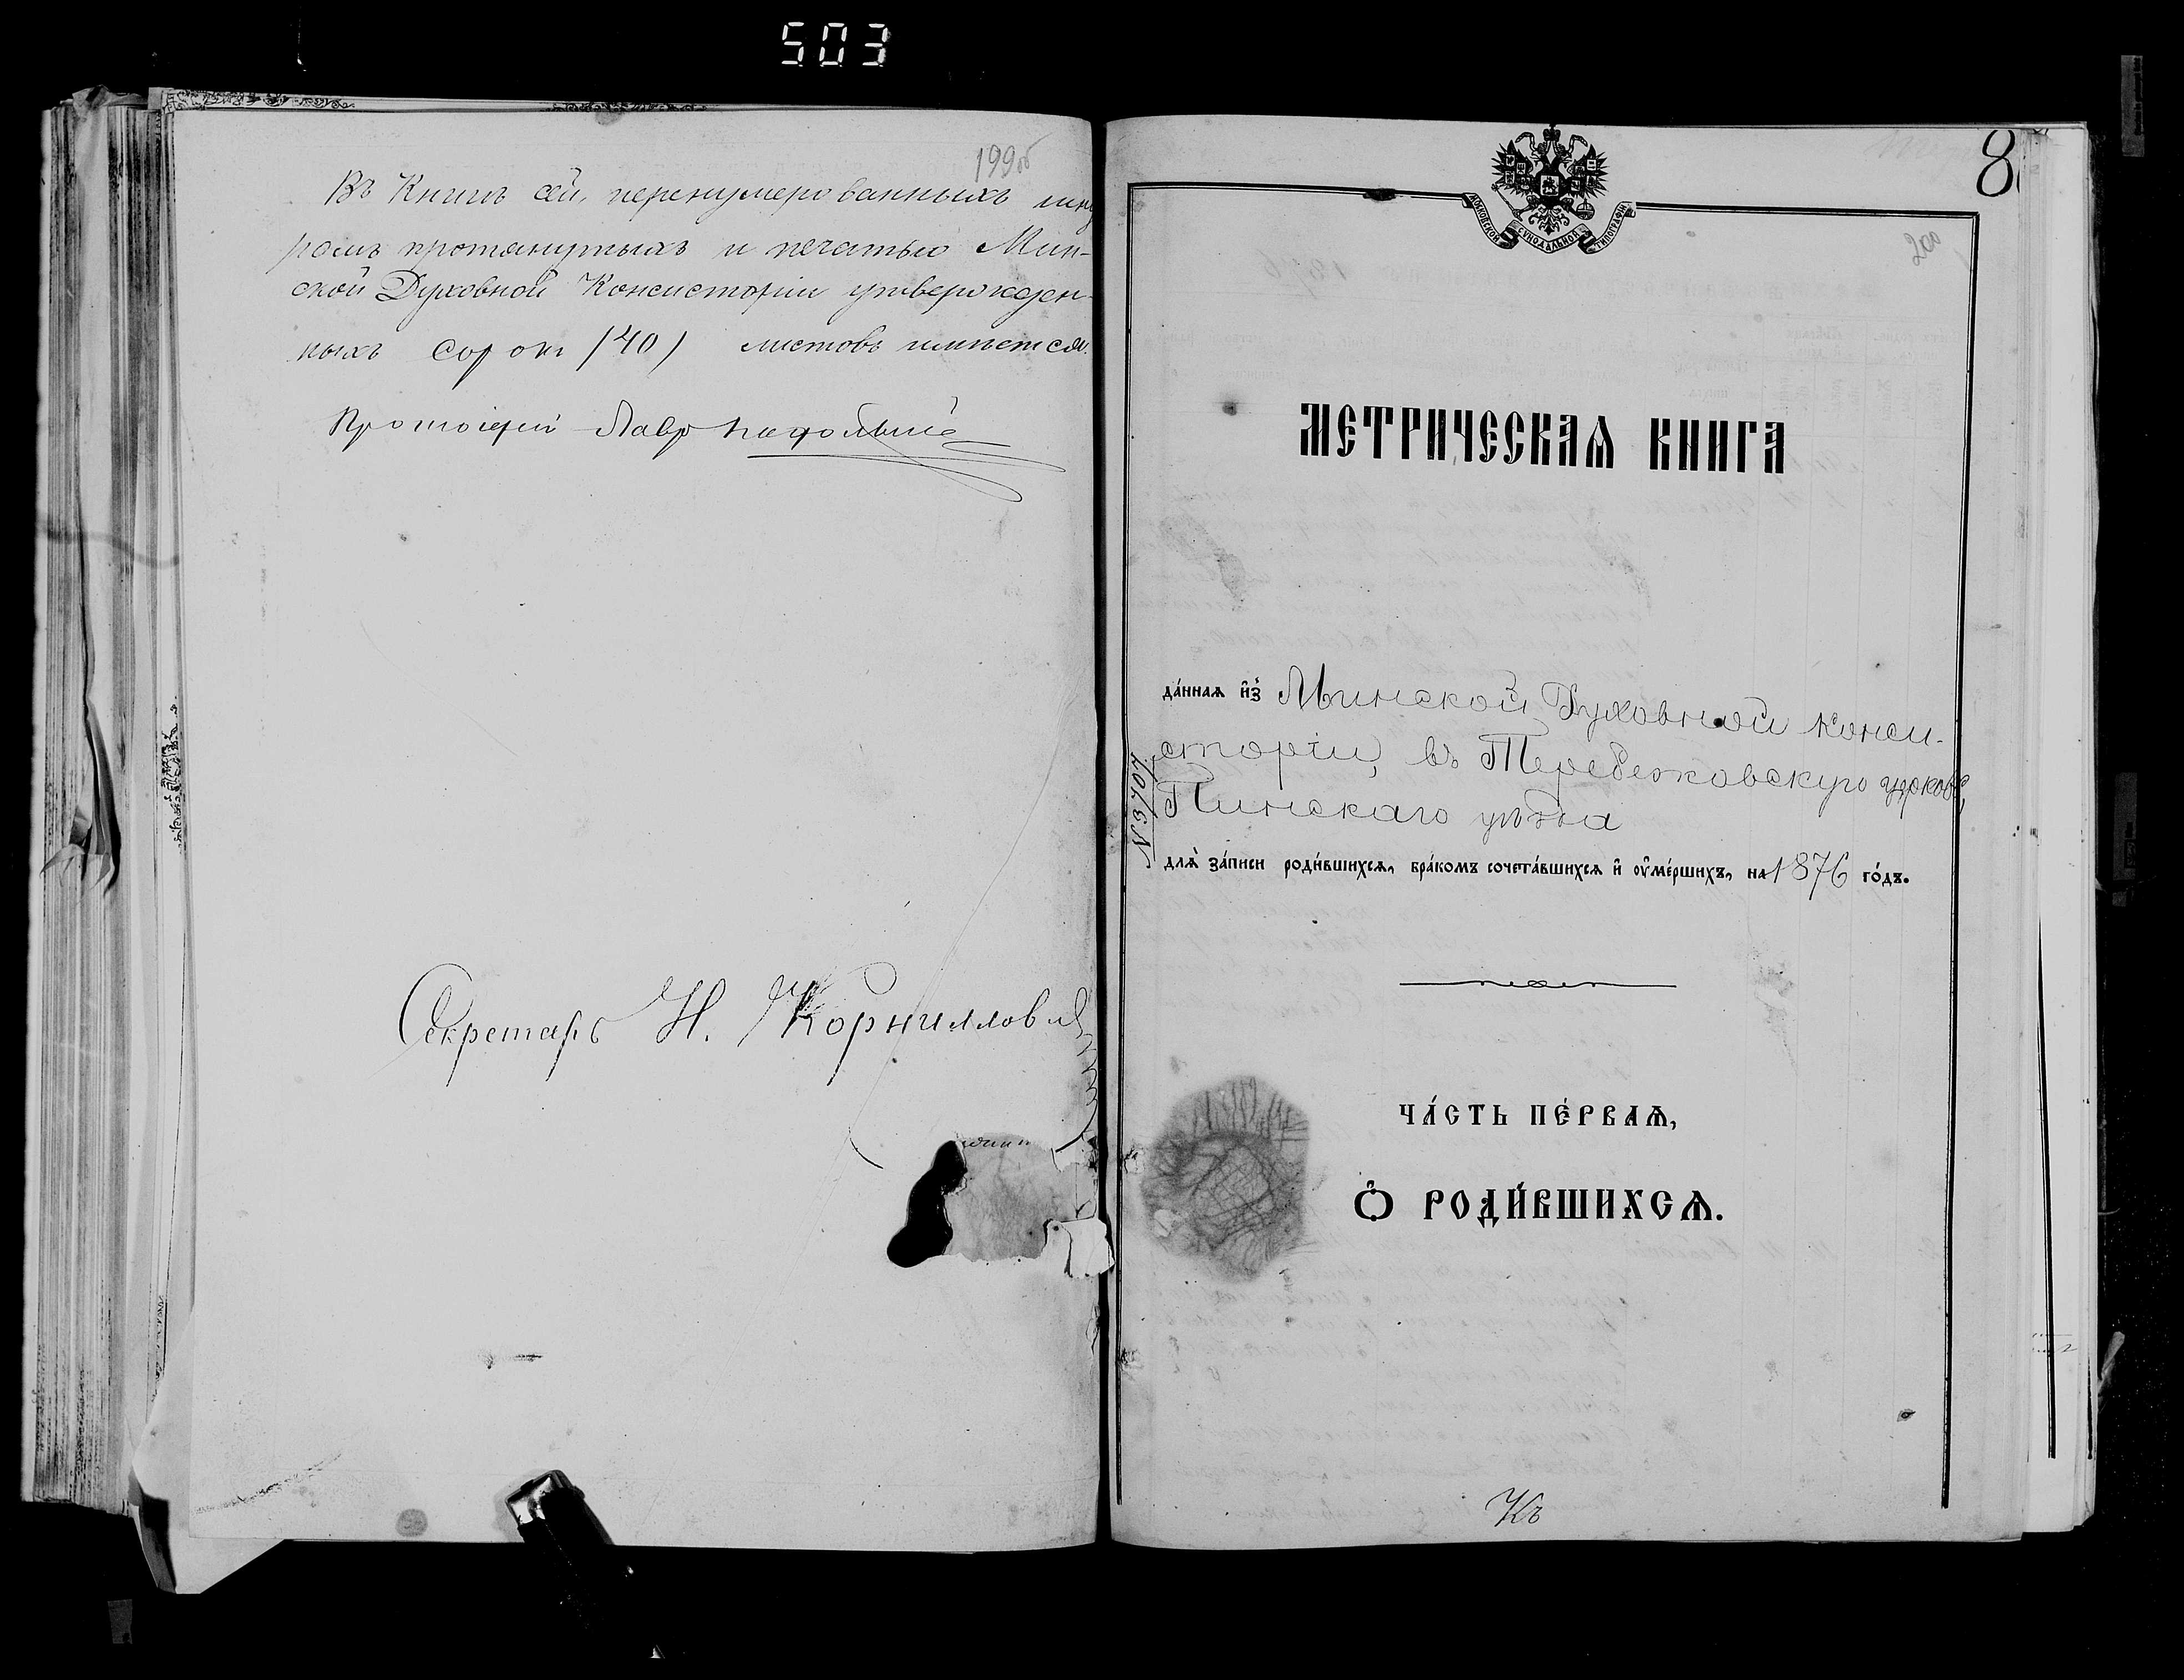 503
199об
Въ Книгѣ сей, перенумерованныхъ шну
ромъ протянутыхъ и печатью Мин-
ской Духовной Консисторіи утвержден-
ныхъ сорокъ (40) листовъ имѣется.
Протоіерей Лавръ
Секретарь Н. Корнилловичъ
8
200
МОСКОВСКОЙ СѴНОДАЛЬНОЙ ТИПОГРАФІИ
МЕТРИЧЕСКАѦ КНИГА
да́ннаѧ и҆з̾ Минской Духовной Конси-
сторіи, въ Перебежовскую церковь,
Пинскаго уѣзда
№ 3707
длѧ̀ за́писи роди́вшихсѧ, бра́комъ сочета́вшихсѧ и҆ ᲂу҆ме́ршихъ, на 1876 го́дъ.
ЧА́СТЬ ПЕ́РВАѦ,
Ѽ РОДИ́ВШИХСѦ.
Къ